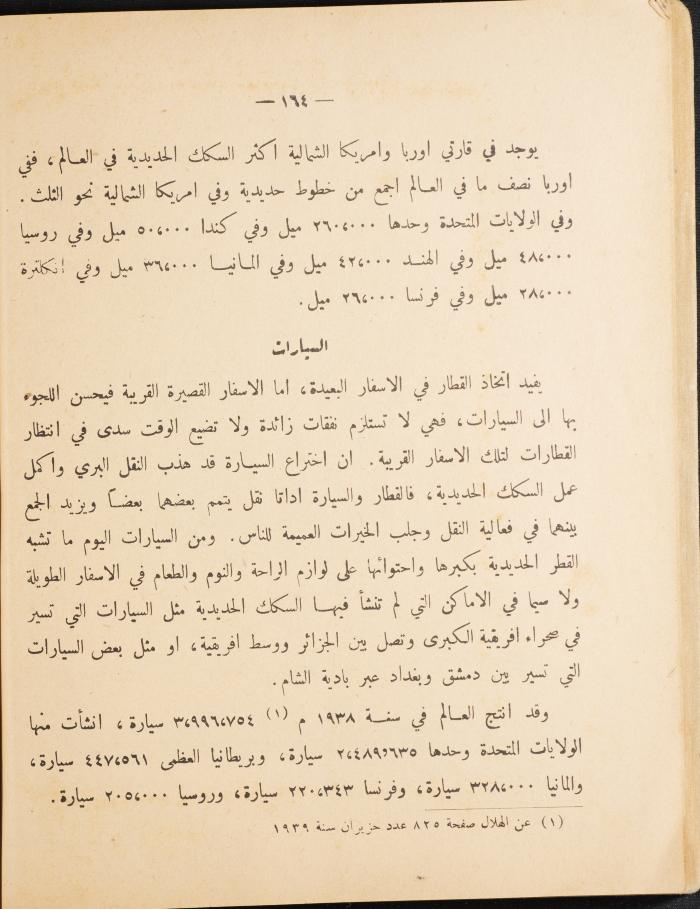 — ١٦٤ —
يوجد في قارتي اوربا وامريكا الشمالية اكثر السكك الحديدية في العـالم ، ففي
اوربا نصف ما في العـالم اجمع من خطوط حديدية وفي امريكا الشمالية نحو الثلث .
وفي الولايات المتحدة وحدها ٢٦٠،٠٠٠ ميل وفي كندا ٥٠،٠٠٠ ميل وفي روسيا
٤٨،٠٠٠ ميل وفي الهنـد ٤٢،٠٠٠ ميل وفي المـانيـا ٣٦،٠٠٠ ميل وفي انكلترة
٢٨،٠٠٠ ميل وفي فرنسا ٢٦،٠٠٠ ميل .
السيارات
يفيد اتخاذ القطار في الاسفار البعيدة، اما الاسفار القصيرة القريبة فيحسن اللجوء
بها الى السيارات، فهي لا تستلزم نفقات زائدة ولا تضيع الوقت سدى في انتظار
القطارات لتلك الاسفار القريبة . ان اختراع السيـارة قد هذب النقل البري واكمل
عمل السكك الحديدية، فالقطار والسيارة اداتا نقل يتمم بعضهما بعضـاً ويزيد الجمع
بينهما في فعالية النقل وجلب الخيرات العميمة للناس . ومن السيارات اليوم ما تشبه
القطر الحديدية بكبرها واحتوائها على لوازم الراحة والنوم والطعام في الاسفار الطويلة
ولا سيما في الاماكن التي لم تنشأ فيهـا السكك الحديدية مثل السيارات التي تسير
في صحراء افريقية الكبرى وتصل بين الجزائر ووسط افريقية، او مثل بعض السيارات
التي تسير بين دمشق وبغداد عبر بادية الشام .
وقد انتج العـالم في سنـة ١٩٣٨ م (١) ٣،٩٩٦،٧٥٤ سيارة ، انشأت منها
الولايات المتحدة وحدها ٢،٤٨٩،٦٣٥ سيارة، وبريطانيا العظمى ٤٤٧،٥٦١ سيارة،
والمانيا ٣٢٨،٠٠٠ سيارة، وفرنسا ٢٢٠،٣٤٣ سيارة، وروسيا ٢٠٥،٠٠٠ سيارة .
(١) عن الهلال صفحة ٨٢٥ عدد حزيران سنة ١٩٣٩